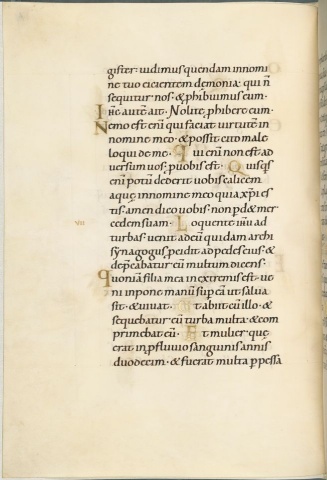 gister· uidimus quendam innomi
ne tuo eicientem demonia· qui ñ
sequitur nos· & phibuimus eum·
Ihc̄ autē ait· Nolite phibere eum·
Nemo est enī qui faciat uirtutē in
nomine meo· & possit cito male
loqui de me· Qui enī non est ad
uersum uos, p uobis est· Quisqs
enī potū dederit uobis calicem
aquę innomine meo quia xpi es
tis· amen dico uobis· non pd& mer
cedem suam· Loquente ihu ad
turbas· uenit ad eū quidam archi
synagogus, peidit ad pedes eius· &
depcabatur eū multum dicens·
quoniā filia mea in extremis est· ue
ni inpone manū sup eā ut salua
sit· & uiuat· Et abiit cū illo· &
sequebatur eū turba multa· & com
primebat eū· Et mulier quę
erat in pfluuio sanguinis annis
duodecim· & fuerat multa ppessa
vii